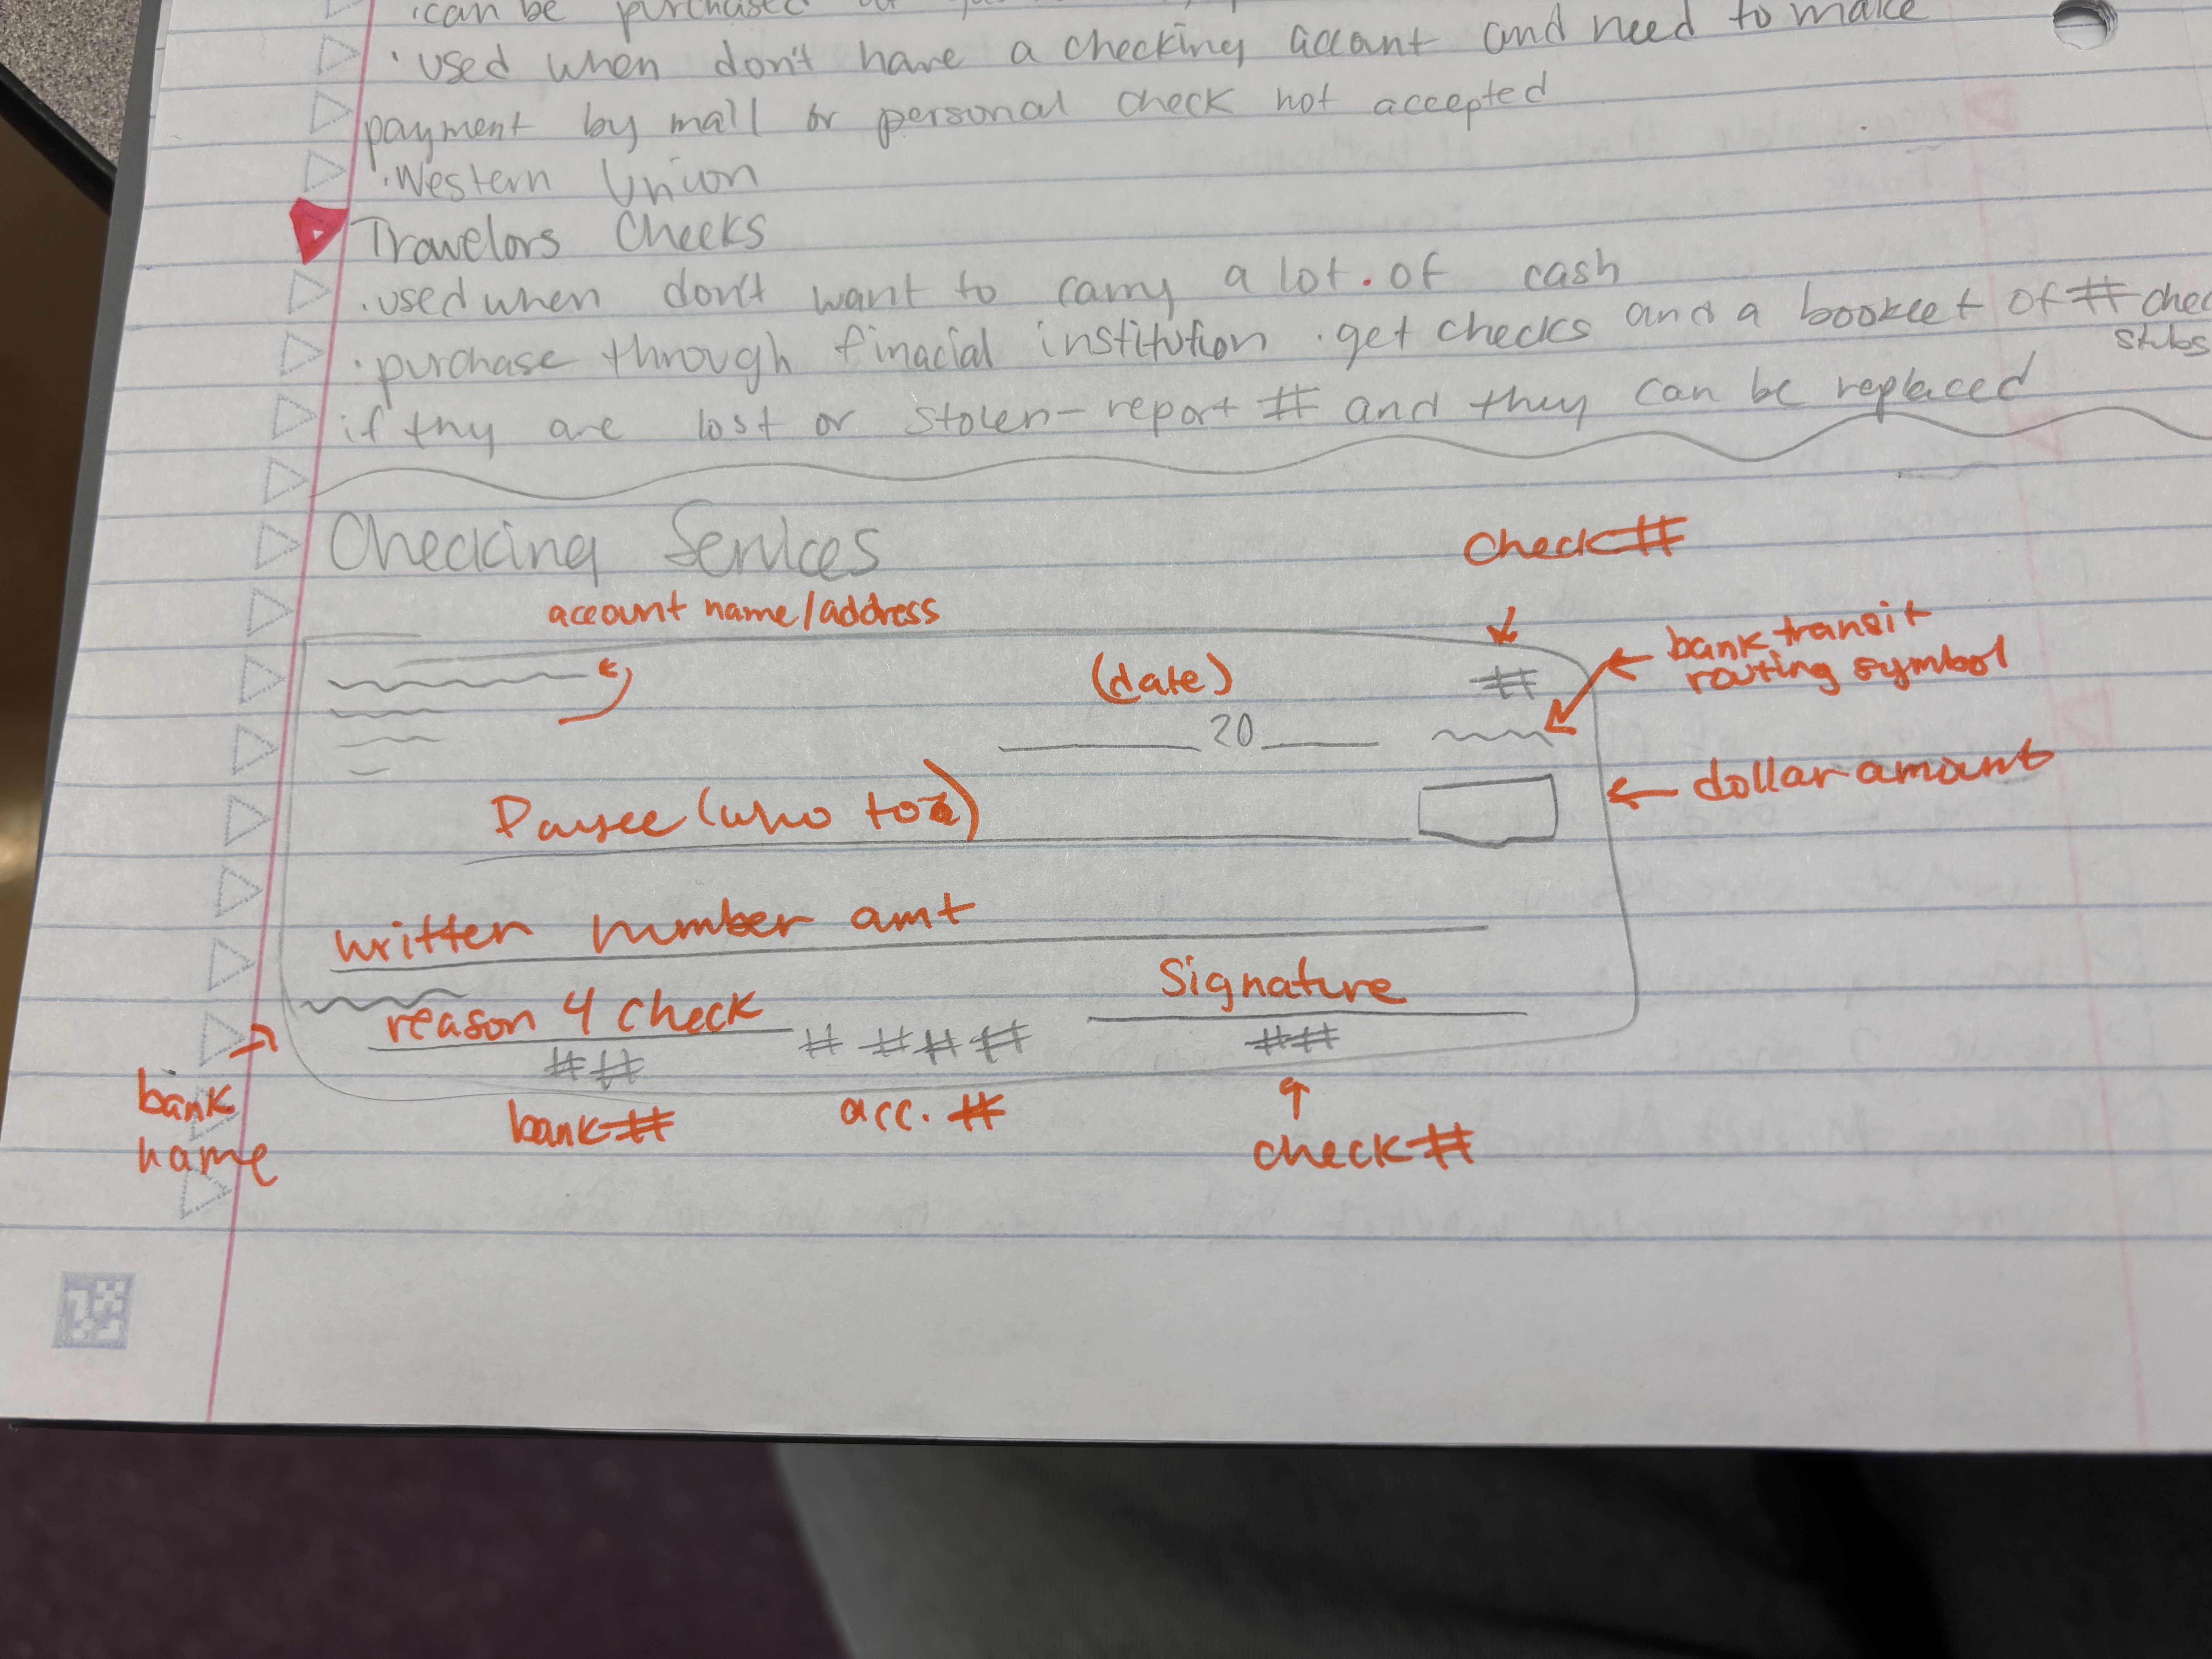 ·can be purchased
·used when don't have a checking account and need to make
payment by mail or personal check not accepted
·Western Union
Travelors Checks
·used when don't want to carry a lot. of cash
·purchase through finacial institution ·get checks and a booklet of # chec
stubs
if thy are lost or stolen- report # and they can be replaced
Checking Services
check #
account name/address
bank transit
routing symbol
(date)
#
20
dollar amount
Payee (who to)
written number amt
Signature
reason 4 check
## # ### ##
bank
name
bank #
acc. #
check #